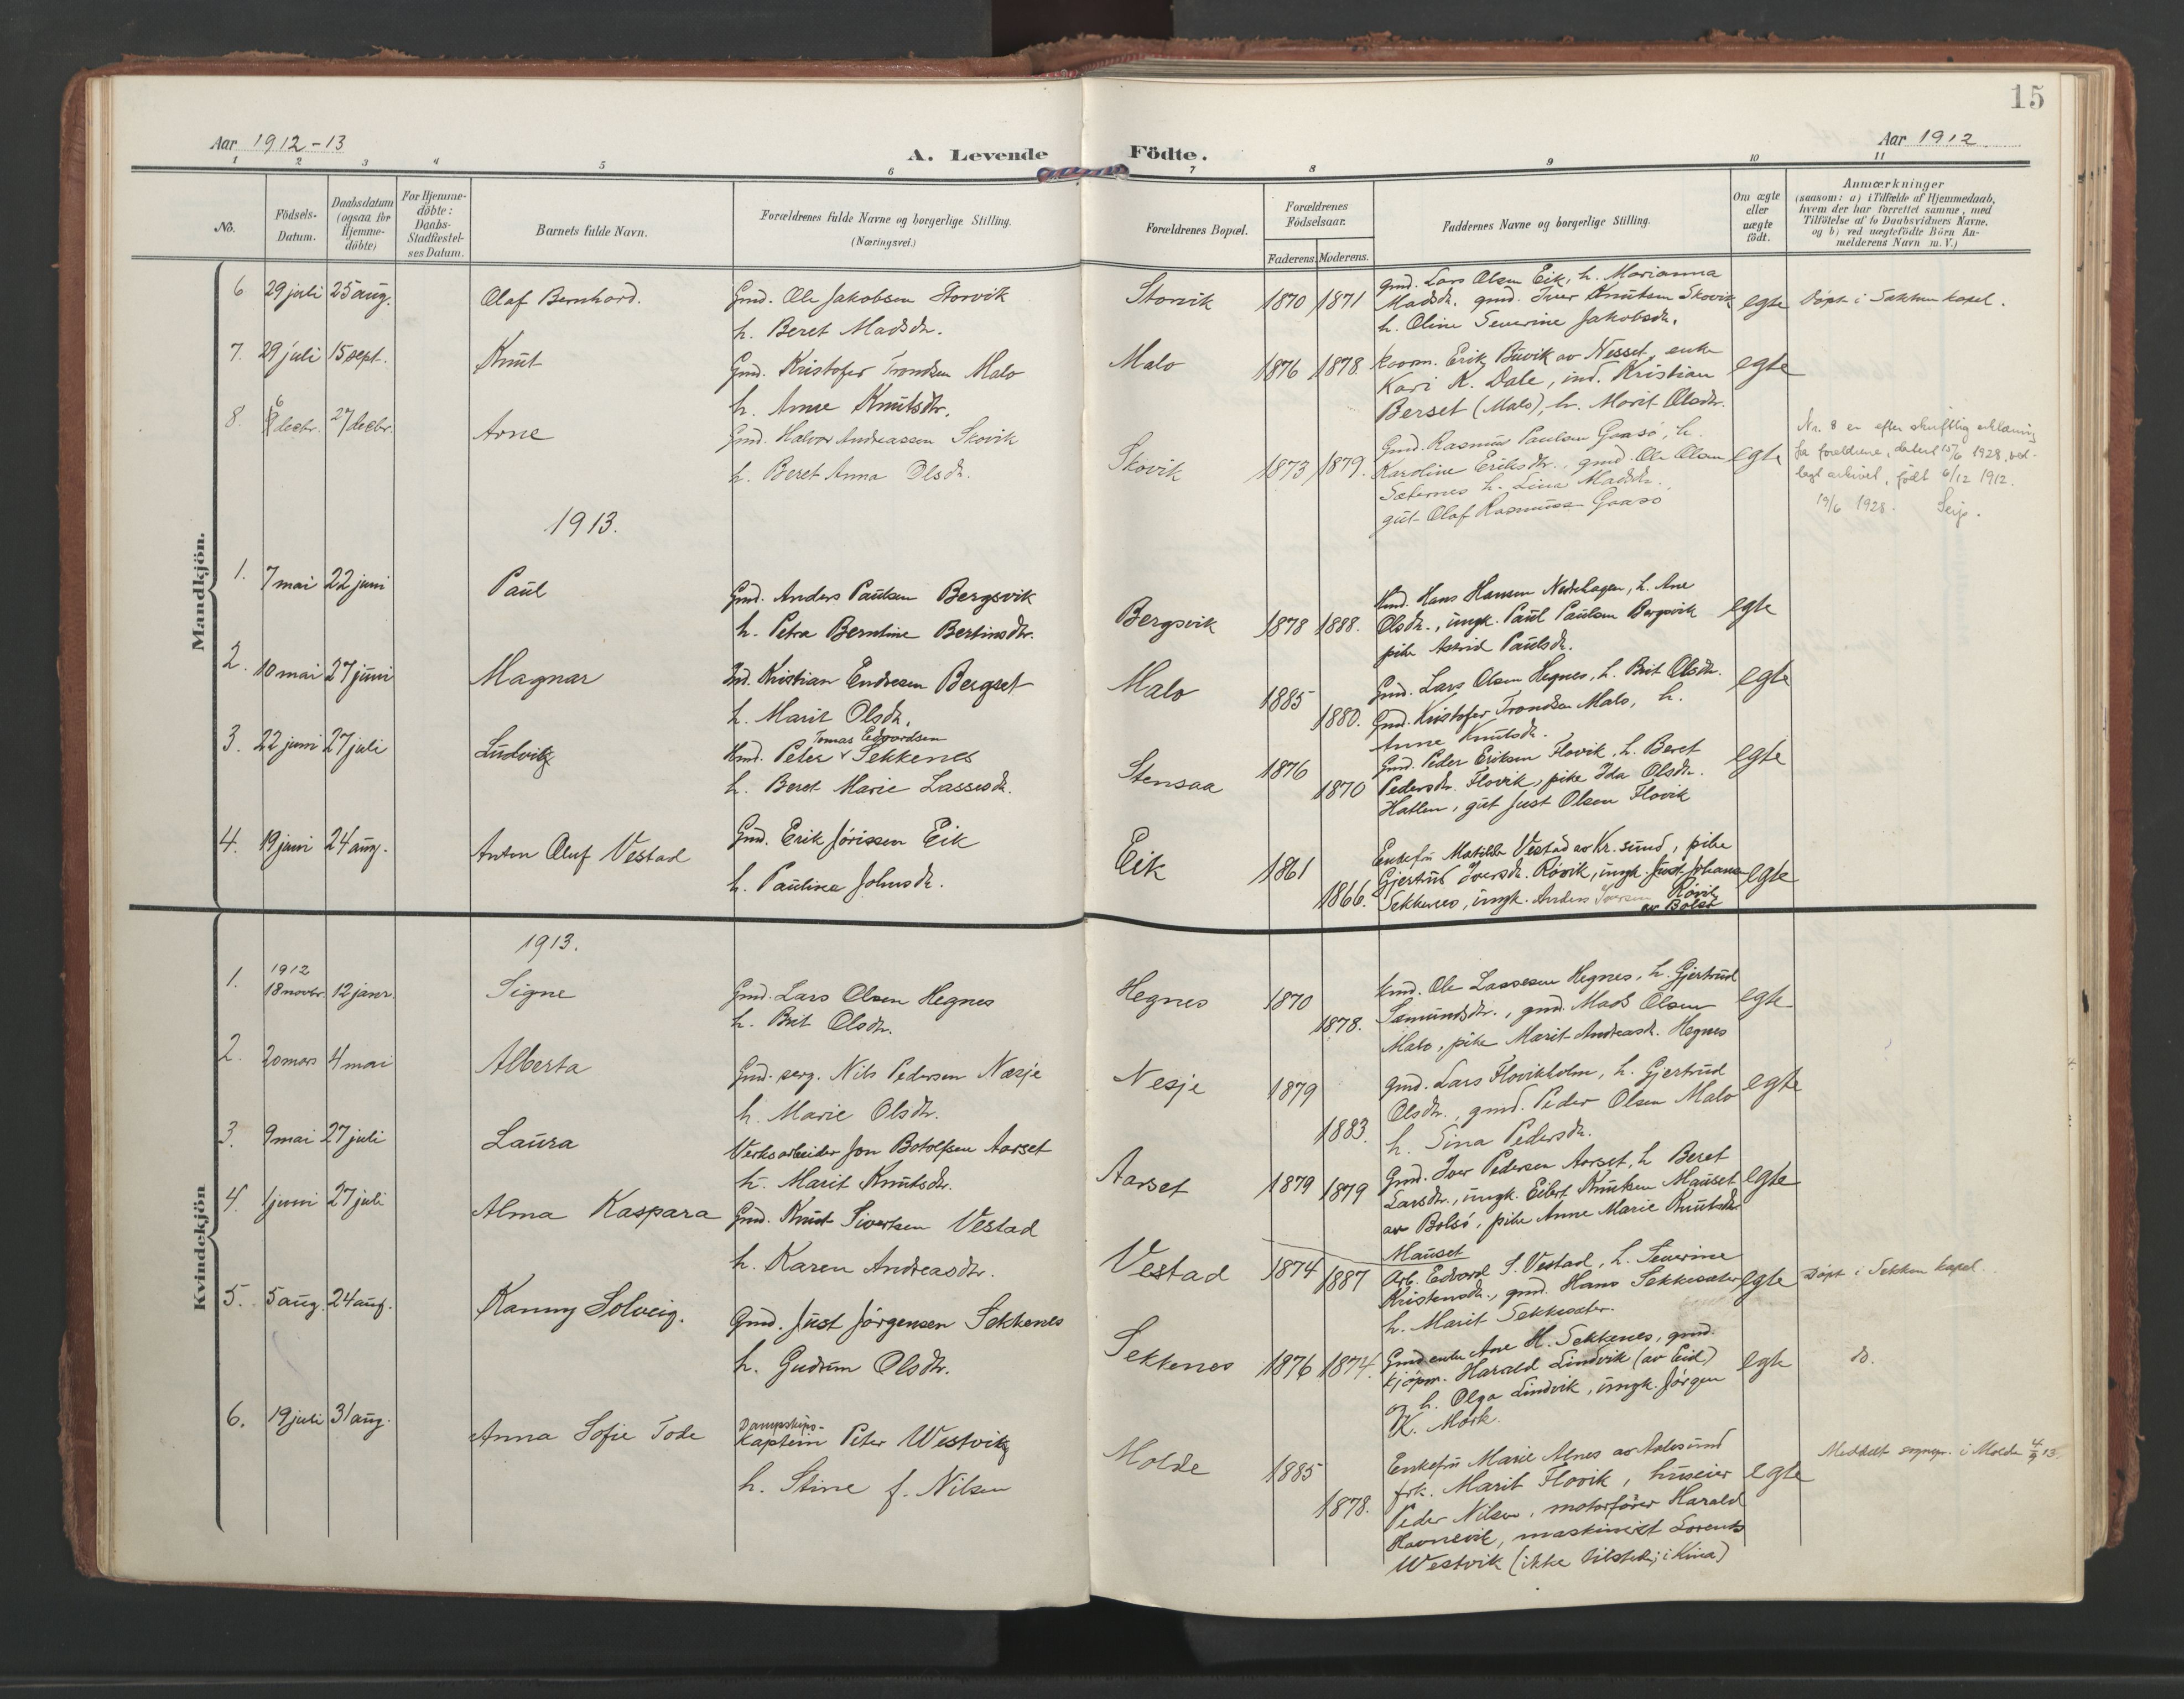 15
Aar 1912-13
A. Levende Födte.
Aar 1912
1 2 3 4 5 6 7 8 9 10 11
No.
Födsels-Datum.
Daabsdatum (ogsaa for Hjemme-döbte)
For Hjemme-döbte: Daabs-Stadfæstel-ses Datum.
Barnets fulde Navn.
Forældrenes fulde Navne og borgerlige Stilling.
(Næringsvei.)
Forældrenes Bopæl.
Forældrenes Födselsaar.
Faderens. Moderens.
Faddernes Navne og borgerlige Stilling.
Om ægte eller uægte födt.
Anmærkninger
(saasom: a) i Tilfælde af Hjemmedaab,
hvem der har forrettet samme, med
Tilföielse af to Daabsvidners Navne.
og b) ved uægtefödte Börn An-
melderens Navn m. V.)
Mandkjön.
6 29 juli 25 aug. Olaf Bernhard. Gmd. Ole Jakobsen Storvik
h. Beret Madsdr.
Storvik 1870 1871
gmd. Lars Olsen Eik, h. Marianna
Madsdr. gmd. Iver Knutsen Skovik
h. Oline Severine Jakobsdr.
egte Döpt i Sekken kapel.
7. 29 juli 15 sept. Knut Gmd. Kristofer Trondsen Malo
h. Anne Knutsdr.
Malo 1876 1878.
koorm. Erik Buvik av Nesset, enke
Kari K. Dale, ind. Kristian
Berset (Malo), h. Marit Olsdr.
egte
8. 6 decbr. 27 decbr. Arne Gmd. Halvor Andreassen Skovik
h. Beret Anna Olsdr.
Skovik 1873 1879.
Gmd. Rasmus Paulsen Gaasö, h.
Karoline Eriksdr., gmd. Ole Olsen
Sæternes h. Lina Madsdr.
gut Olaf Rasmussen Gaasö
egte
Nr. 8 er efter skriftlig erklæring
fra foreldrene, datert 15/6 1928, ved-
lagt arkivet, født 6/12 1912.
19/6 1928.
1913.
1. 7 mai 22 juni Paul Gmd. Anders Paulsen Bergsvik
h. Petra Berntine Bertinsdr.
Bergsvik 1878 1888.
Kmd. Hans Hansen Nedrehagen, h. Ane
Olsdr., ungk. Paul Paulsen Bergsvik
pike Astrid Paulsdr.
egte
2. 10 mai 27 juni Magnar Ind. Kristian Endresen Bergset
h. Marit Olsdr.
Malo 1885 1880.
Gmd. Lars Olsen Hegnes, h. Brit Olsdr.
Gmd. Kristofer Trondsen Malo, h.
Anne Knutsdr.
egte
3. 22 juni 27 juli Ludvik
Tomas Edvardsen
Kmd. Peter Sekkenes
h. Beret Marie Lassesdr.
Stensaa 1876 1870
Gmd. Peder Eriksen Flovik, h. Beret
Pedersdr. Flovik, pike Ida Olsdr.
Hatlen, gut Just Olsen Flovik
egte
4. 19 juni 24 aug. Anton Oluf Vestad Gmd. Erik Jörissen Eik
h. Pauline Johnsdr.
Eik 1861 1866.
Enkefru Matilde Vestad av Kr. sund, pike
Gjertrud Iversdr. Rövik, ungk. Just Johansen
Sekkenes, ungk. Anders Iversen Rövik
av Bolsö
egte
Kvindekjön
1913.
1. 1912
18 novbr. 12 janr. Signe Gmd. Lars Olsen Hegnes
h. Brit Olsdr.
Hegnes 1870 1878.
kmd. Ole Lassesen Hegnes, h. Gjertrud
Samundsdr., gmd. Mads Olsen
Malo, pike Marit Andreasdr. Hegnes
egte
2. 20 mars 4 mai Alberta Gmd. serg. Nils Pedersen Nesje
h. Marie Olsdr.
Nesje 1879 1883.
gmd. Lars Flovikholm, h. Gjertrud
Olsdr., gmd. Peder Olsen Malo
h. Sina Pedersdr.
egte
3. 9 mai 27 juli Laura Verksarbeider Jon Botolfsen Aarset
h. Marit Knutsdr.
Aarset 1879 1879
Gmd. Iver Pedersen Aarset, h. Beret
Larsdr., ungk. Eilert Knutsen Mauset
av Bolsö, pike Anne Marie Knutsdr.
Mauset
egte
4. 1 juni 27 juli Alma Kaspara Gmd. Knut Sivertsen Vestad
h. Karen Andreasdr.
Vestad 1874 1887
Arb. Edvard S. Vestad, h. Severine
Kristensdr., gmd. Hans Sekkesæter
h. Marit Sekkesæter.
egte Döpt i Sekken kapel.
5. 5 aug. 24 aug. Kanny Solveig. Gmd. Just Jörgensen Sekkenes
h. Gudrun Olsdr.
Sekkenes 1876 1874.
Gmd enke Ane H. Sekkenes, gmd.
kjöpm. Harald Lindvik (av Eid)
og h. Olga Lindvik, ungk. Jörgen
K. Mork.
egte do.
6. 19 juli 31 aug. Anna Sofie Tode
Dampskips-
kaptein Peter Westvik
h. Stine f. Nilsen
Molde 1885 1878.
Enkefru Marie Alnes av Aalesund
frk. Marit Flovik, huseier
Peder Nilsen, motorförer Harald
Havnevik, maskinist Lorents
Westvik (ikke tilstede; i Kina)
egte Meddelt sognepr. i Molde 4/9 13.